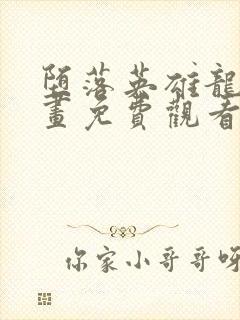 堕落英雄龍
畫免費觀看
你家小哥哥呀